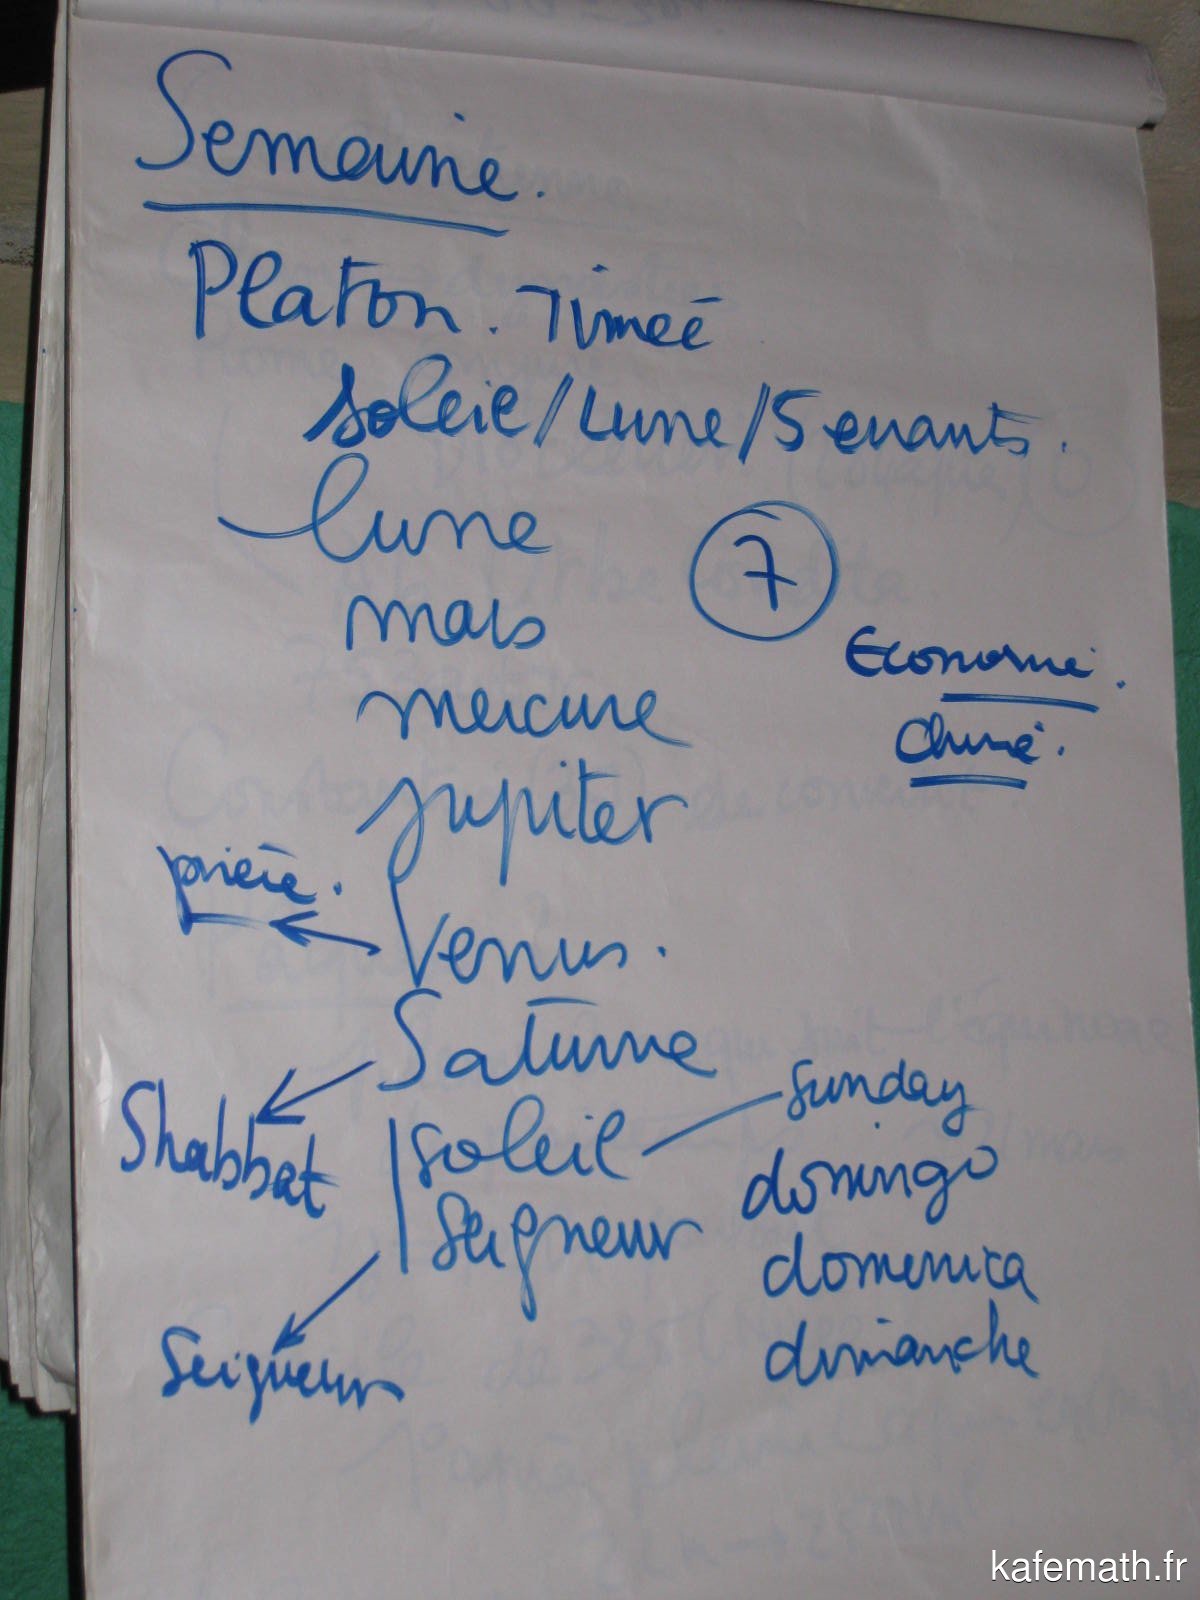 Semaine.
Platon. Timée
soleil/Lune/5 errants.
lune
mars
7
Economie.
mercure
Chine.
jupiter
prière.
Venus.
Saturne
Shabbat
soleil
sunday
Seigneur
domingo
domenica
Seigneur
dimanche
kafemath.fr